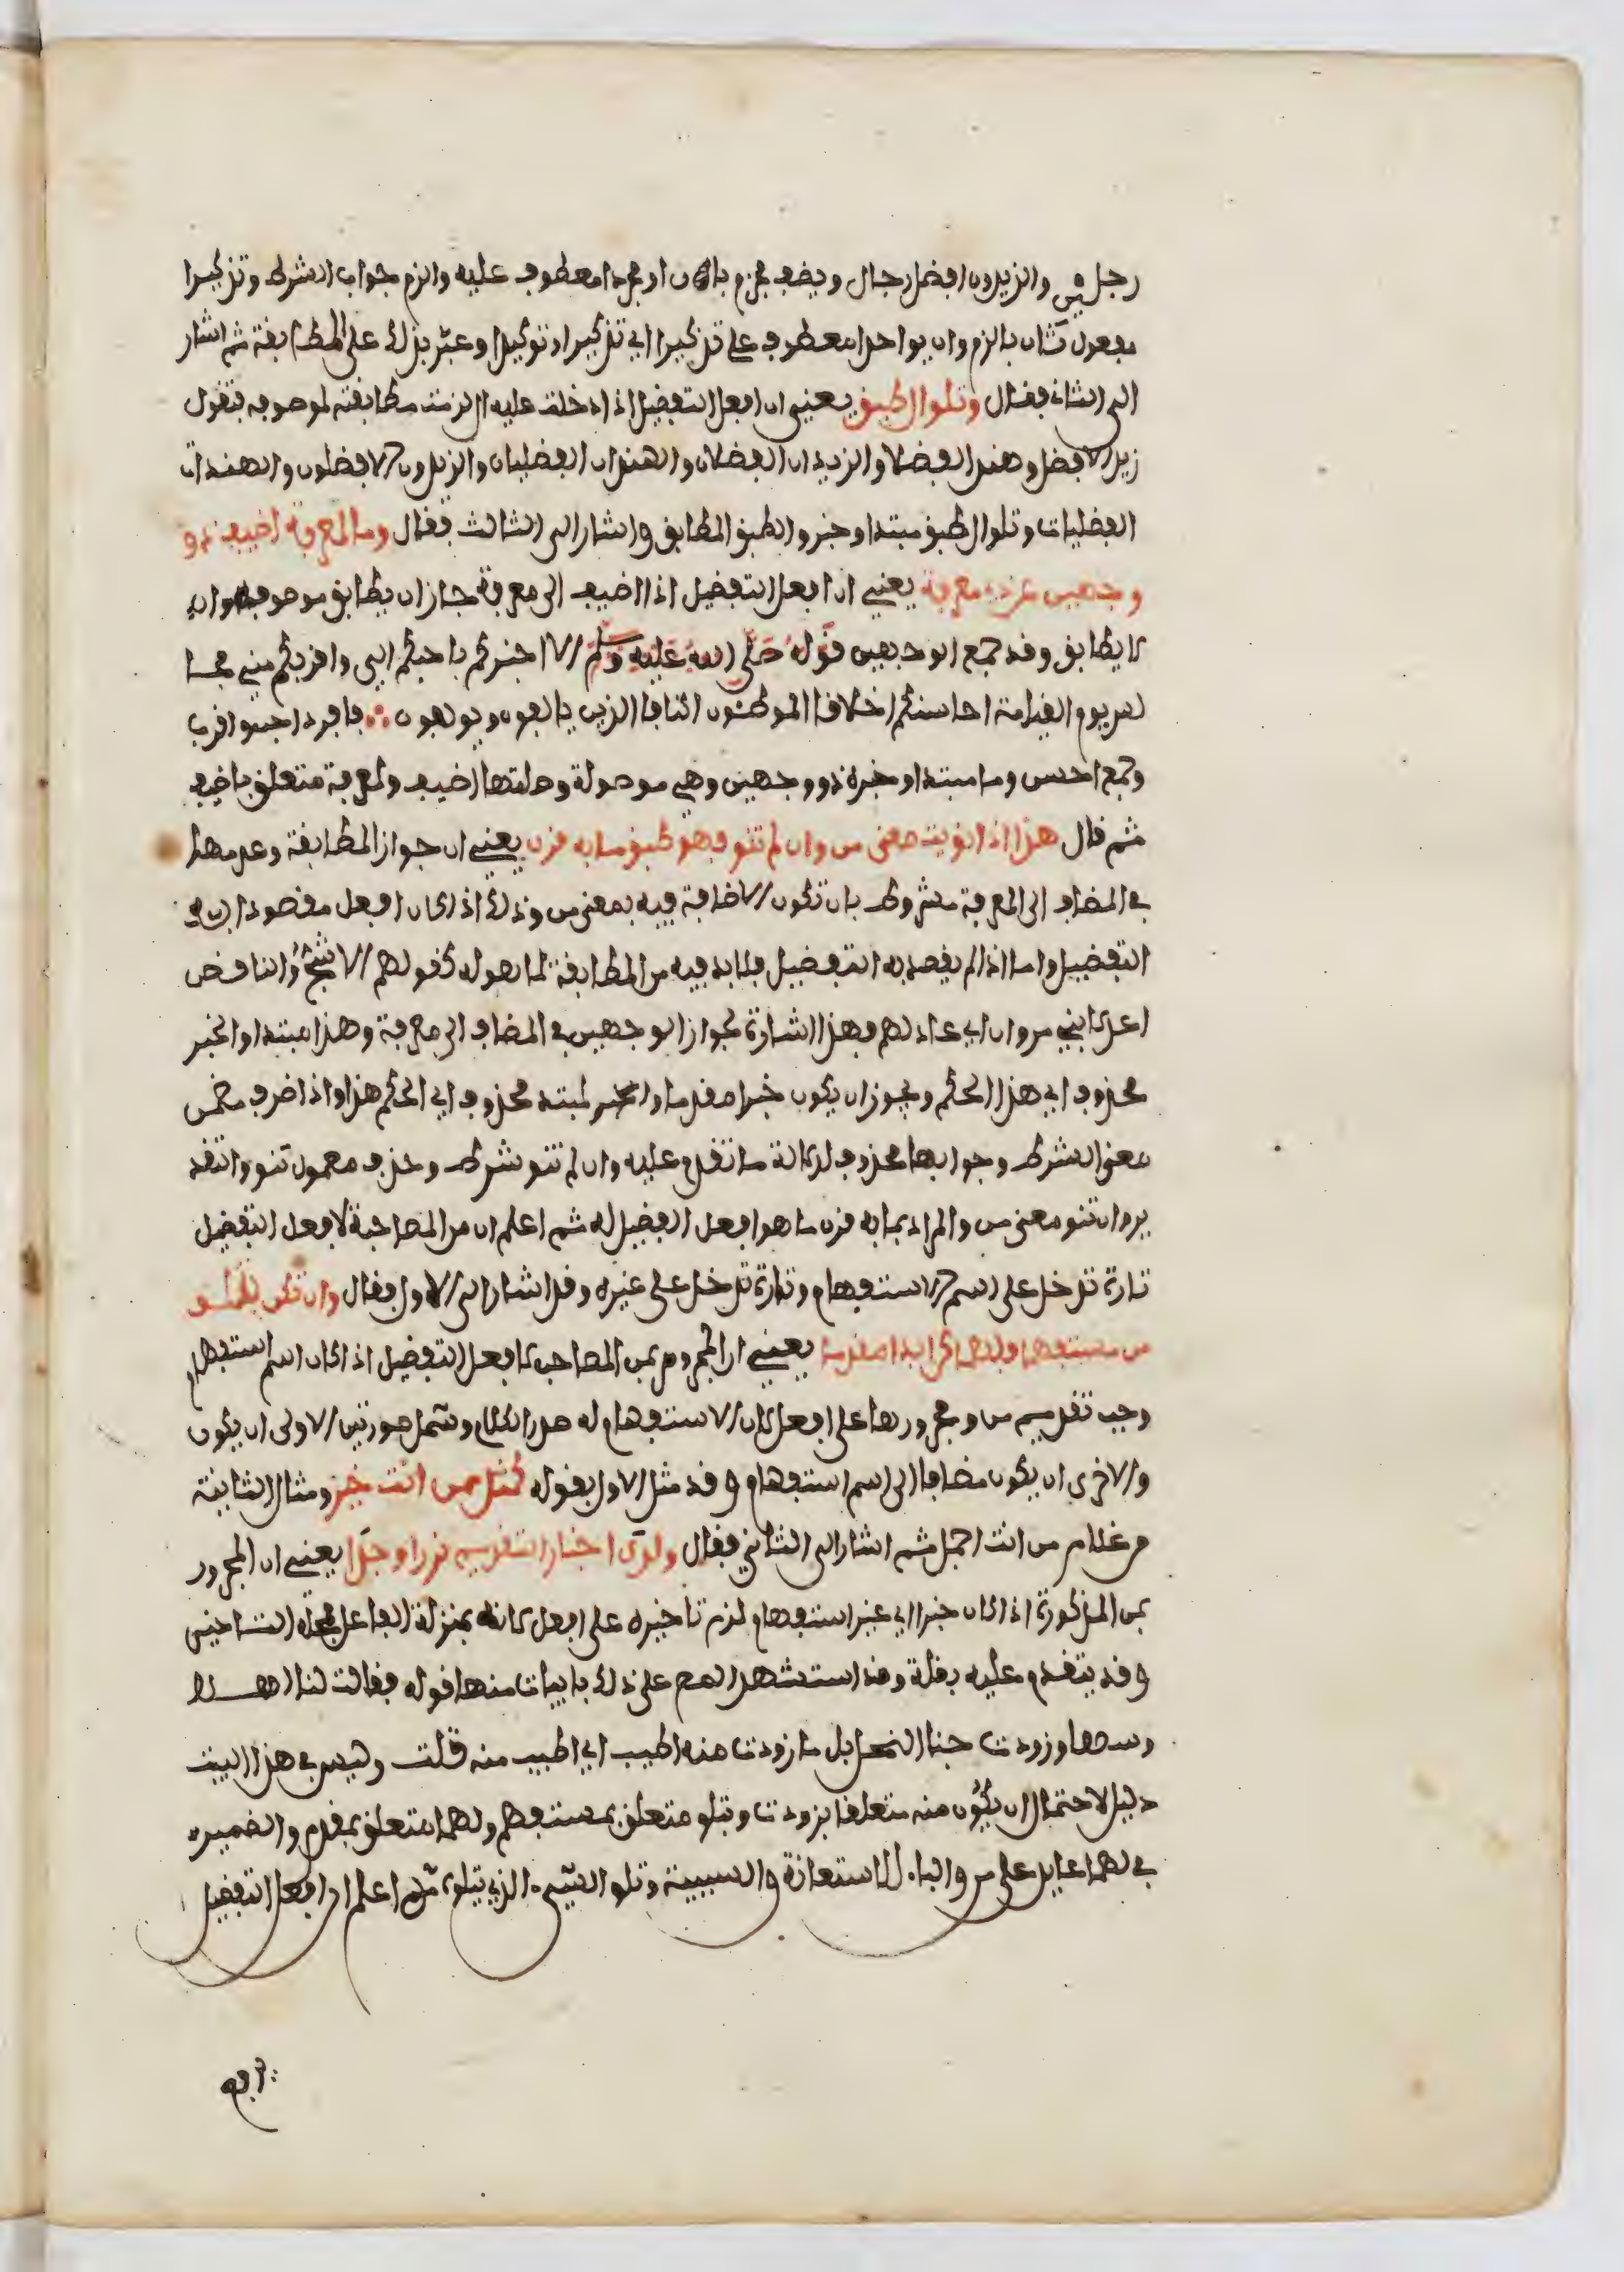 رجلين والزيدون افضل رجال ويضف مجزوم بان او مجردا معطوف عليه والزم جواب الشرط وتذكيرا
مفعول ثان بالزم وان يوحدا معطوف على تذكيرا اي تذكيرا وتوحيدا وعبّر بذلك على المطابقة ثم اشار
الى الثاني فقال وتلو ال طبق يعني ان افعل التفضيل اذا دخلت عليه ال لزمت مطابقته لموصوفه فتقول
زيد الافضل وهند الفضلى والزيدان الافضلان والهندان الفضليان والزيدون الافضلون والهندات
الفضليات وتلو ال طبق مبتدا وخبر والطبق المطابق واشار الى الثالث فقال وما لمعرفة اضيف ذو
وجهين عن ذي معرفة يعني ان افعل التفضيل اذا اضيف الى معرفة جاز ان يطابق موصوفه وان
لا يطابق وقد جمع الوجهين قوله صلى الله عليه وسلم الا اخبركم باحبكم الي واقربكم مني مجا
لس يوم القيامة احاسنكم اخلاقا الموطئون اكنافا الذين يالفون ويولفون فافرد احب واقرب
وجمع احسن وما مبتدا وخبره ذو وجهين وهي موصولة وصلتها اضيف ولمعرفة متعلق باضيف
ثم قال هذا اذا نويت معنى من وان لم تنو فهو طبق ما به قرن يعني ان جواز المطابقة وعدمها
في المضاف الى المعرفة مشروط بان تكون الاضافة فيه بمعنى من وذلك اذا كان افعل مقصودا به
التفضيل واما اذا لم يقصد به التفضيل فلا بد فيه من المطابقة لما هو له كقولهم الاشج والناقص
اعدلا بني مروان اي عادلاهم فهذا اشارة لجواز الوجهين في المضاف الى معرفة وهذا مبتدا والخبر
محذوف اي هذا الحكم ويجوز ان يكون خبرا مقدما والخبر لمبتد محذوف اي الحكم هذا واذا ظرف مضمن
معنى الشرط وجوابها محذوف لدلالة ما تقدم عليه وان لم تنو شرط وحذف معمول تنو والتقد
ير وان تنو معنى من والمراد بما به قرن ما هو افعل التفضيل له ثم اعلم ان من المصاحبة لافعل التفضيل
تارة تدخل على اسم الاستفهام وتارة تدخل على غيره وقد اشار الى الاول فقال وان تكن بتلو
من مستفهما فلهما كن ابدا مقدما يعني ان المجرور بمن المصاحب لافعل التفضيل اذا كان اسم استفهام
وجب تقديم من ومجرورها على افعل لان الاستفهام له صدر الكلام وشمل صورتين الاولى ان يكون
والاخرى ان يكون مضافا الى اسم استفهام وقد مثل الاول بقوله كمثل ممن انت خير ومثال الثانية
من غلام من انت اجمل ثم اشار الى الثاني فقال ولدى اخبار التقديم نزرا وجدا يعني ان المجرور
بمن المذكورة اذا كان خبرا اي غير استفهام لزم تاخيره على افعل لانه بمنزلة الفاعل فمحله التاخير
وقد يتقدم عليه بقلة وقد استشهد المص على ذلك بابيات منها قوله فقالت لنا اهـــلا
وسهلا وزودت جنا النحل بل ما زودت منه اطيب اي اطيب منه قلت وليس في هذا البيت
دليل لاحتمال ان يكون منه متعلقا بزودت وبتلو متعلق بمستفهم ولهما متعلق بمقدم والضمير
في لهما عايد على من والباء للاستعانة والسببية وتلو الشيء الذي يتلوه ثم اعلم ان افعل التفضيل